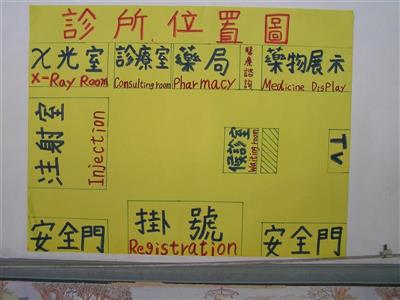 診所位置圖
X光室
X-Ray Room
診療室
Consulting room
藥局
Pharmacy
醫療諮詢
藥物展示
Medicine Display
注射室
Injection
候診室
Waiting room
TV
安全門
掛號
Registration
安全門